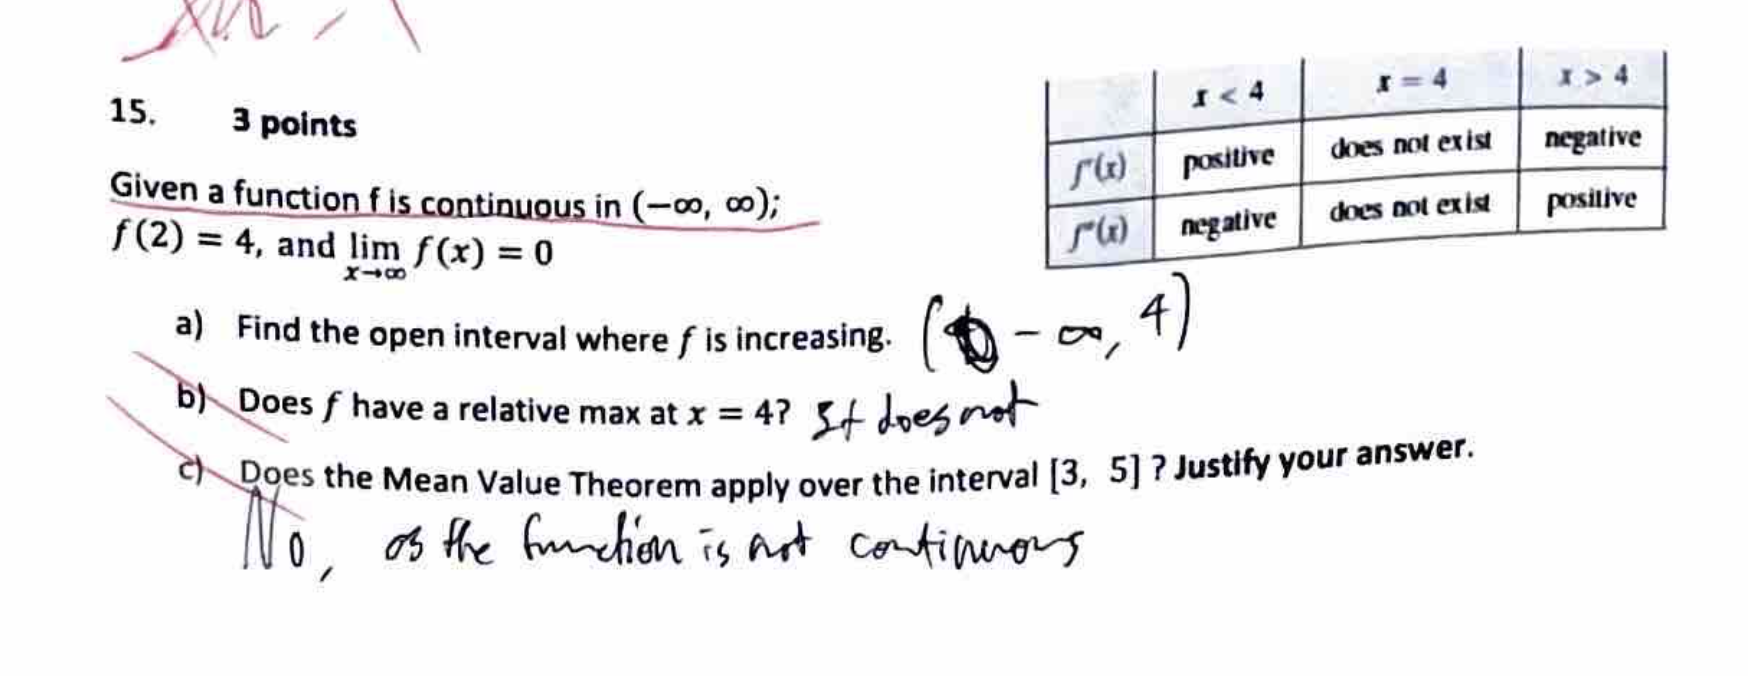 15. 3 points
x < 4 x = 4 x > 4
f'(x) positive does not exist negative
f"(x) negative does not exist positive
Given a function f is continuous in (−∞, ∞);
f(2) = 4, and lim f(x) = 0
x→∞
a) Find the open interval where f is increasing. (-∞, 4)
b) Does f have a relative max at x = 4? It does not
c) Does the Mean Value Theorem apply over the interval [3, 5] ? Justify your answer.
No, as the function is not continuous